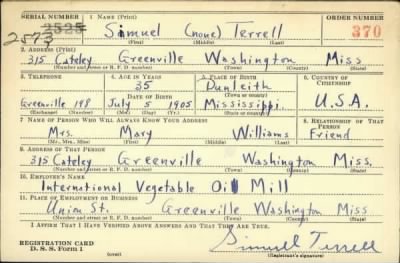 SERIAL NUMBER 1 NAME (Print) ORDER NUMBER
2525 Simuel (none) Terrell 370
2573 (First) (Middle) (Last)
2. ADDRESS (Print)
315 Cateley Greenville Washington Miss
(Number and street or R. F. D. number) (Town) (County) (State)
3. TELEPHONE 4. AGE IN YEARS 5. PLACE OF BIRTH 6. COUNTRY OF CITIZENSHIP
35 Dunleith
DATE OF BIRTH (Town or county)
Greenville 198 July 5 1905 Mississippi. U.S.A.
(Exchange) (Number) (Mo.) (Day) (Yr.) (State or country)
7 NAME OF PERSON WHO WILL ALWAYS KNOW YOUR ADDRESS 8. RELATIONSHIP OF THAT PERSON
Mrs. Mary Williams Friend
(Mr., Mrs., Miss) (First) (Middle) (Last)
9. ADDRESS OF THAT PERSON
315 Cateley Greenville Washington Miss.
(Number and street or R. F. D. number) (Town) (County) (State)
10. EMPLOYER'S NAME
International Vegetable Oil Mill
11. PLACE OF EMPLOYMENT OR BUSINESS
Union St. Greenville Washington Miss
(Number and street or R. F. D. number) (Town) (County) (State)
I AFFIRM THAT I HAVE VERIFIED ABOVE ANSWERS AND THAT THEY ARE TRUE.
REGISTRATION CARD Simuel Terrell
D. S. S. Form 1 (over) (Registrant's signature)